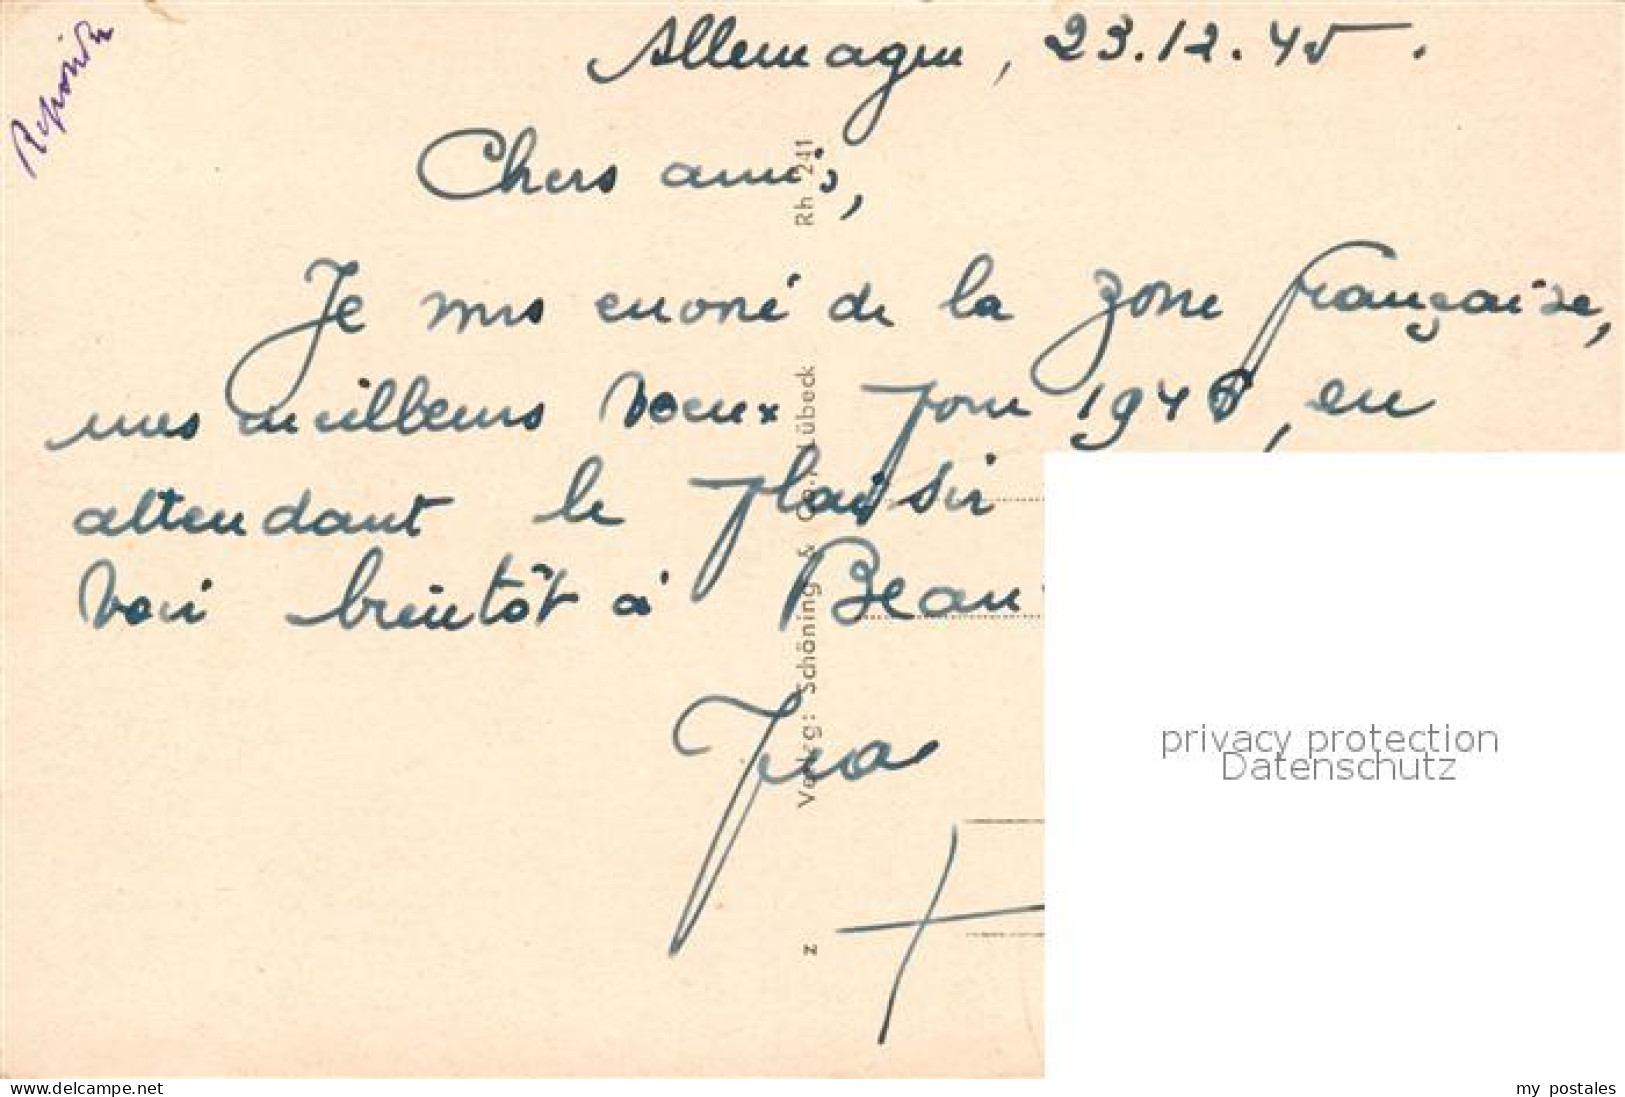 Reponde
Allemagne, 23.12.45.
Chers amis,
Je vous envoie de la zone française,
mes meilleurs voeux pour 1946, en
attendant le plaisir
voir bientôt à Beau
Rh 241
Verlag: Schöning & Co., Lübeck
z
privacy protection
Datenschutz
delcampe.net
my_postales